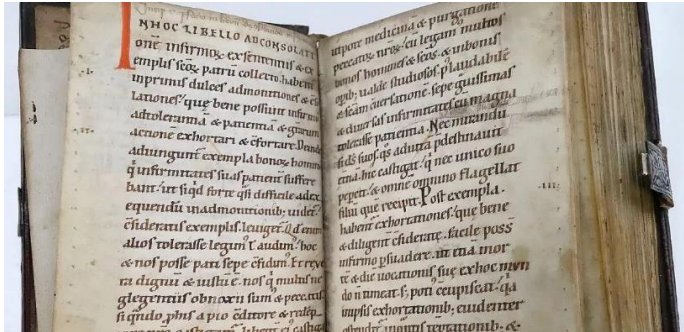 IN HOC LIBELLO AD CONSOLATI
onē infirmoꝝ ex sententiis & ex
emplis scōꝝ patrū collecto habent
inprimis dulces admonitiones & cō
lationes. que bene possint infirmū
ad tolerantiā & patientiā & gratiarū
actionē exhortari & cōfortare. Deinde
adiungunt exempla bonoꝝ hominū
q̇ infirmitates suas patient̄ suffere
bant. ut si qd forte q̇si difficile ad ex
equendū in admonitionib; uidet̄
cōsideratis exemplis. leuiget̄. qd enim
alios tolerasse legim᷒ t audim᷒. hoc
& nos posse pati sepe cōfidim᷒.
ra dignū & iustū ē. nos q̇ multis ne
glegentiis obnoxii sum᷒ & peccatis
si quido plus a pio cōditore & redēp
utpote medicina & purgatione
peccatoꝝ nroꝝ. cū legam᷒ multos
bonos homines & scōs. & in bonis
opib; ualde studiosos. & laudabilē
& scām cuersatione. sepe g̈uissimas
& diuersas infirmitates cū magna
tolerasse patientia. Nec mirandū
si ds suos. qs ad uitā pdestinauit
etnā. hic castigat. q̇ nec unico suo
pepcit. & omnē omnino flagellat
filiū quē recipit. Post exempla.
habent̄ exhortationes. que bene
& diligent̄ cōsiderate. facile possī
infirmo p̄suadere. ut etiā mor
te & die uocationis sue ex hoc mun
do n̄ timeat. s; poti᷒ cōcupiscat. q̇a
in ipsis exhortationib; euidenter